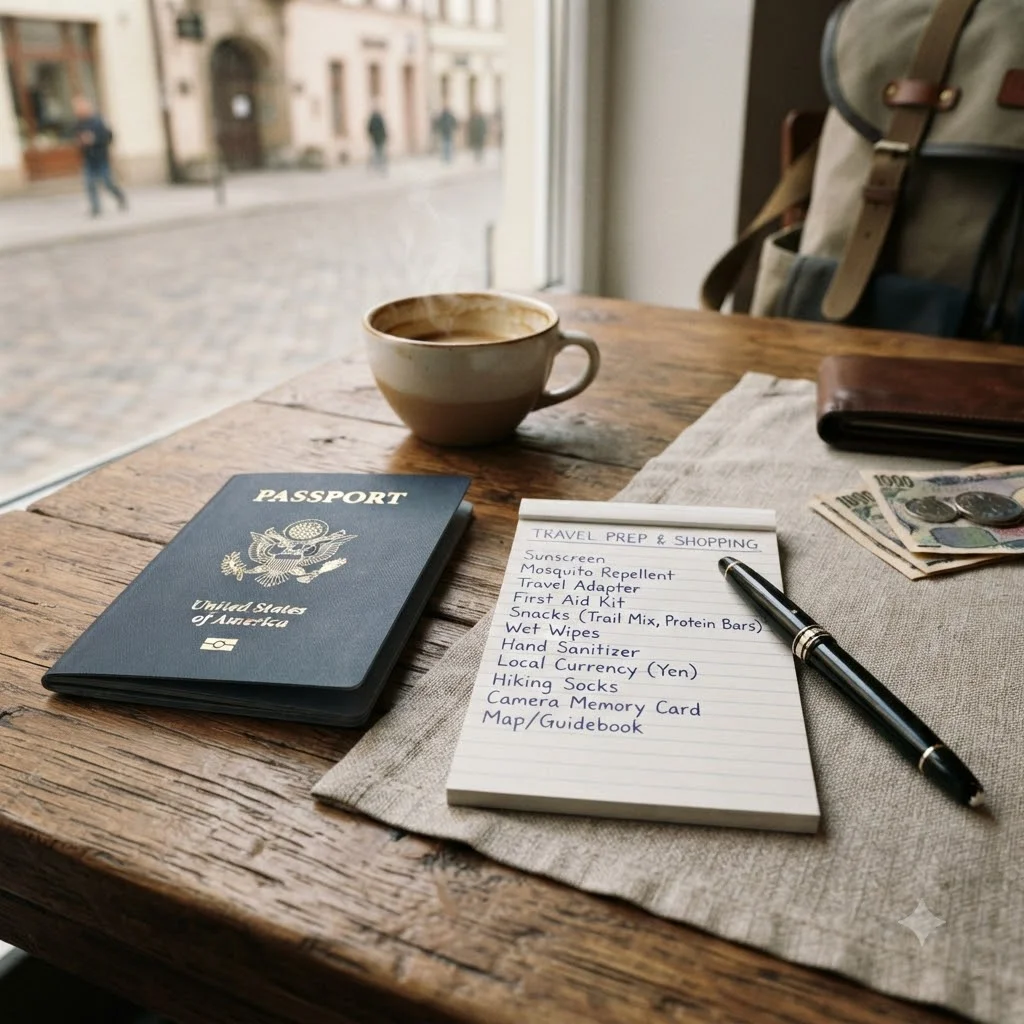 PASSPORT
United States
of America
TRAVEL PREP & SHOPPING
Sunscreen
Mosquito Repellent
Travel Adapter
First Aid Kit
Snacks (Trail Mix, Protein Bars)
Wet Wipes
Hand Sanitizer
Local Currency (Yen)
Hiking Socks
Camera Memory Card
Map/Guidebook
1000
1000